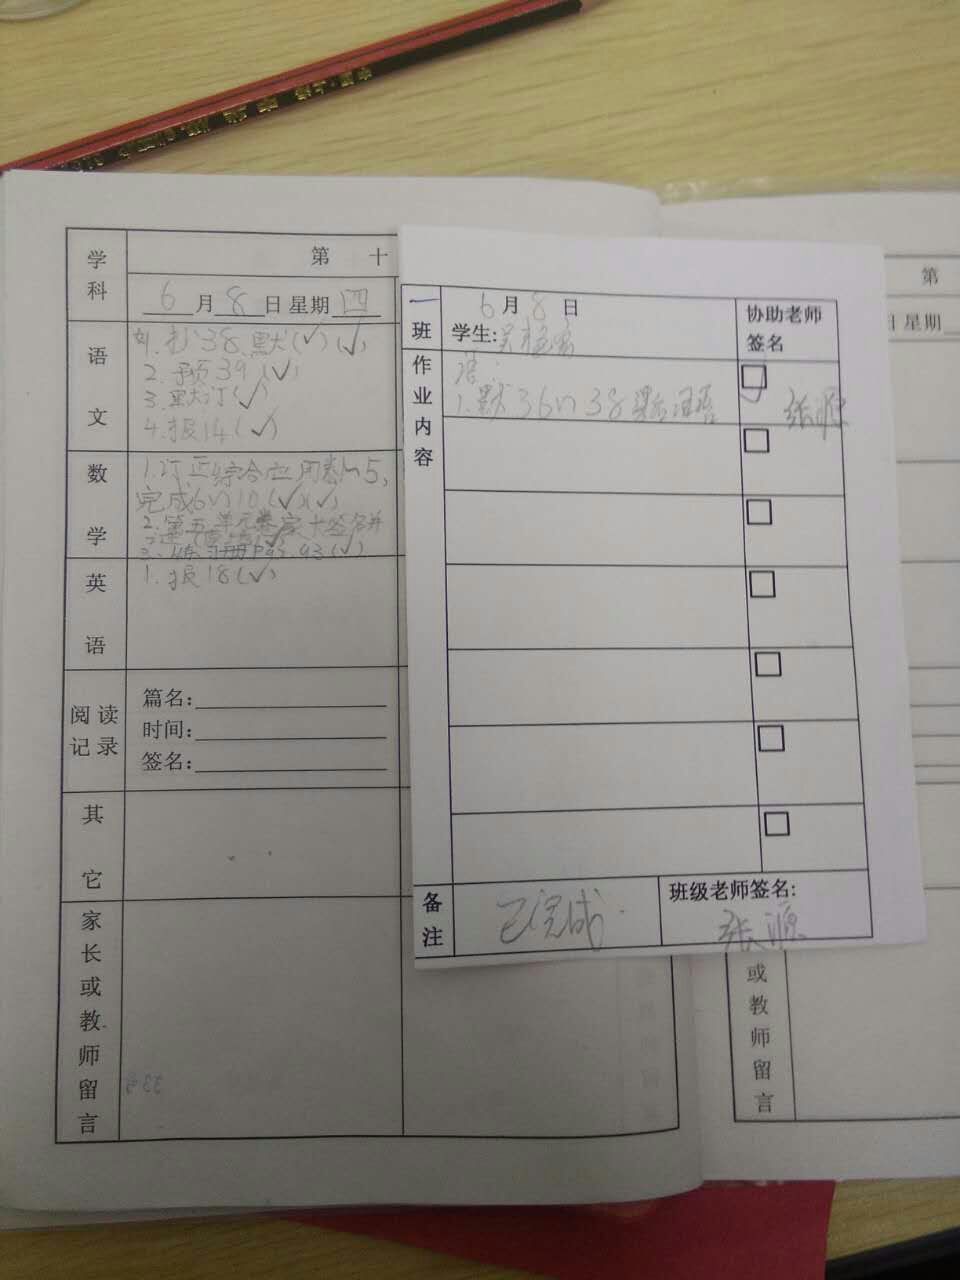 中国·上海
第 十
学科
6月8日 星期四
语文
1. 抄38、默(✓)(✓)
2. 预39(✓)
3. 默订(✓)
4. 报14(✓)
数学
1. 订正综合应用卷1~5,
完成6~10(✓)(✓)
2. 第五单元卷家长签名并
3. 练习册P92、93(✓)
英语
1. 报18(✓)
阅读记录
篇名:
时间:
签名:
其它
家长或教师留言
一班
6月8日
学生:
协助老师
签名
作业内容
语:
1. 默36~38课后词语
□ 张源
□
□
□
□
□
□
备注
已完成.
班级老师签名:
张源
第
日 星期
或教师留言